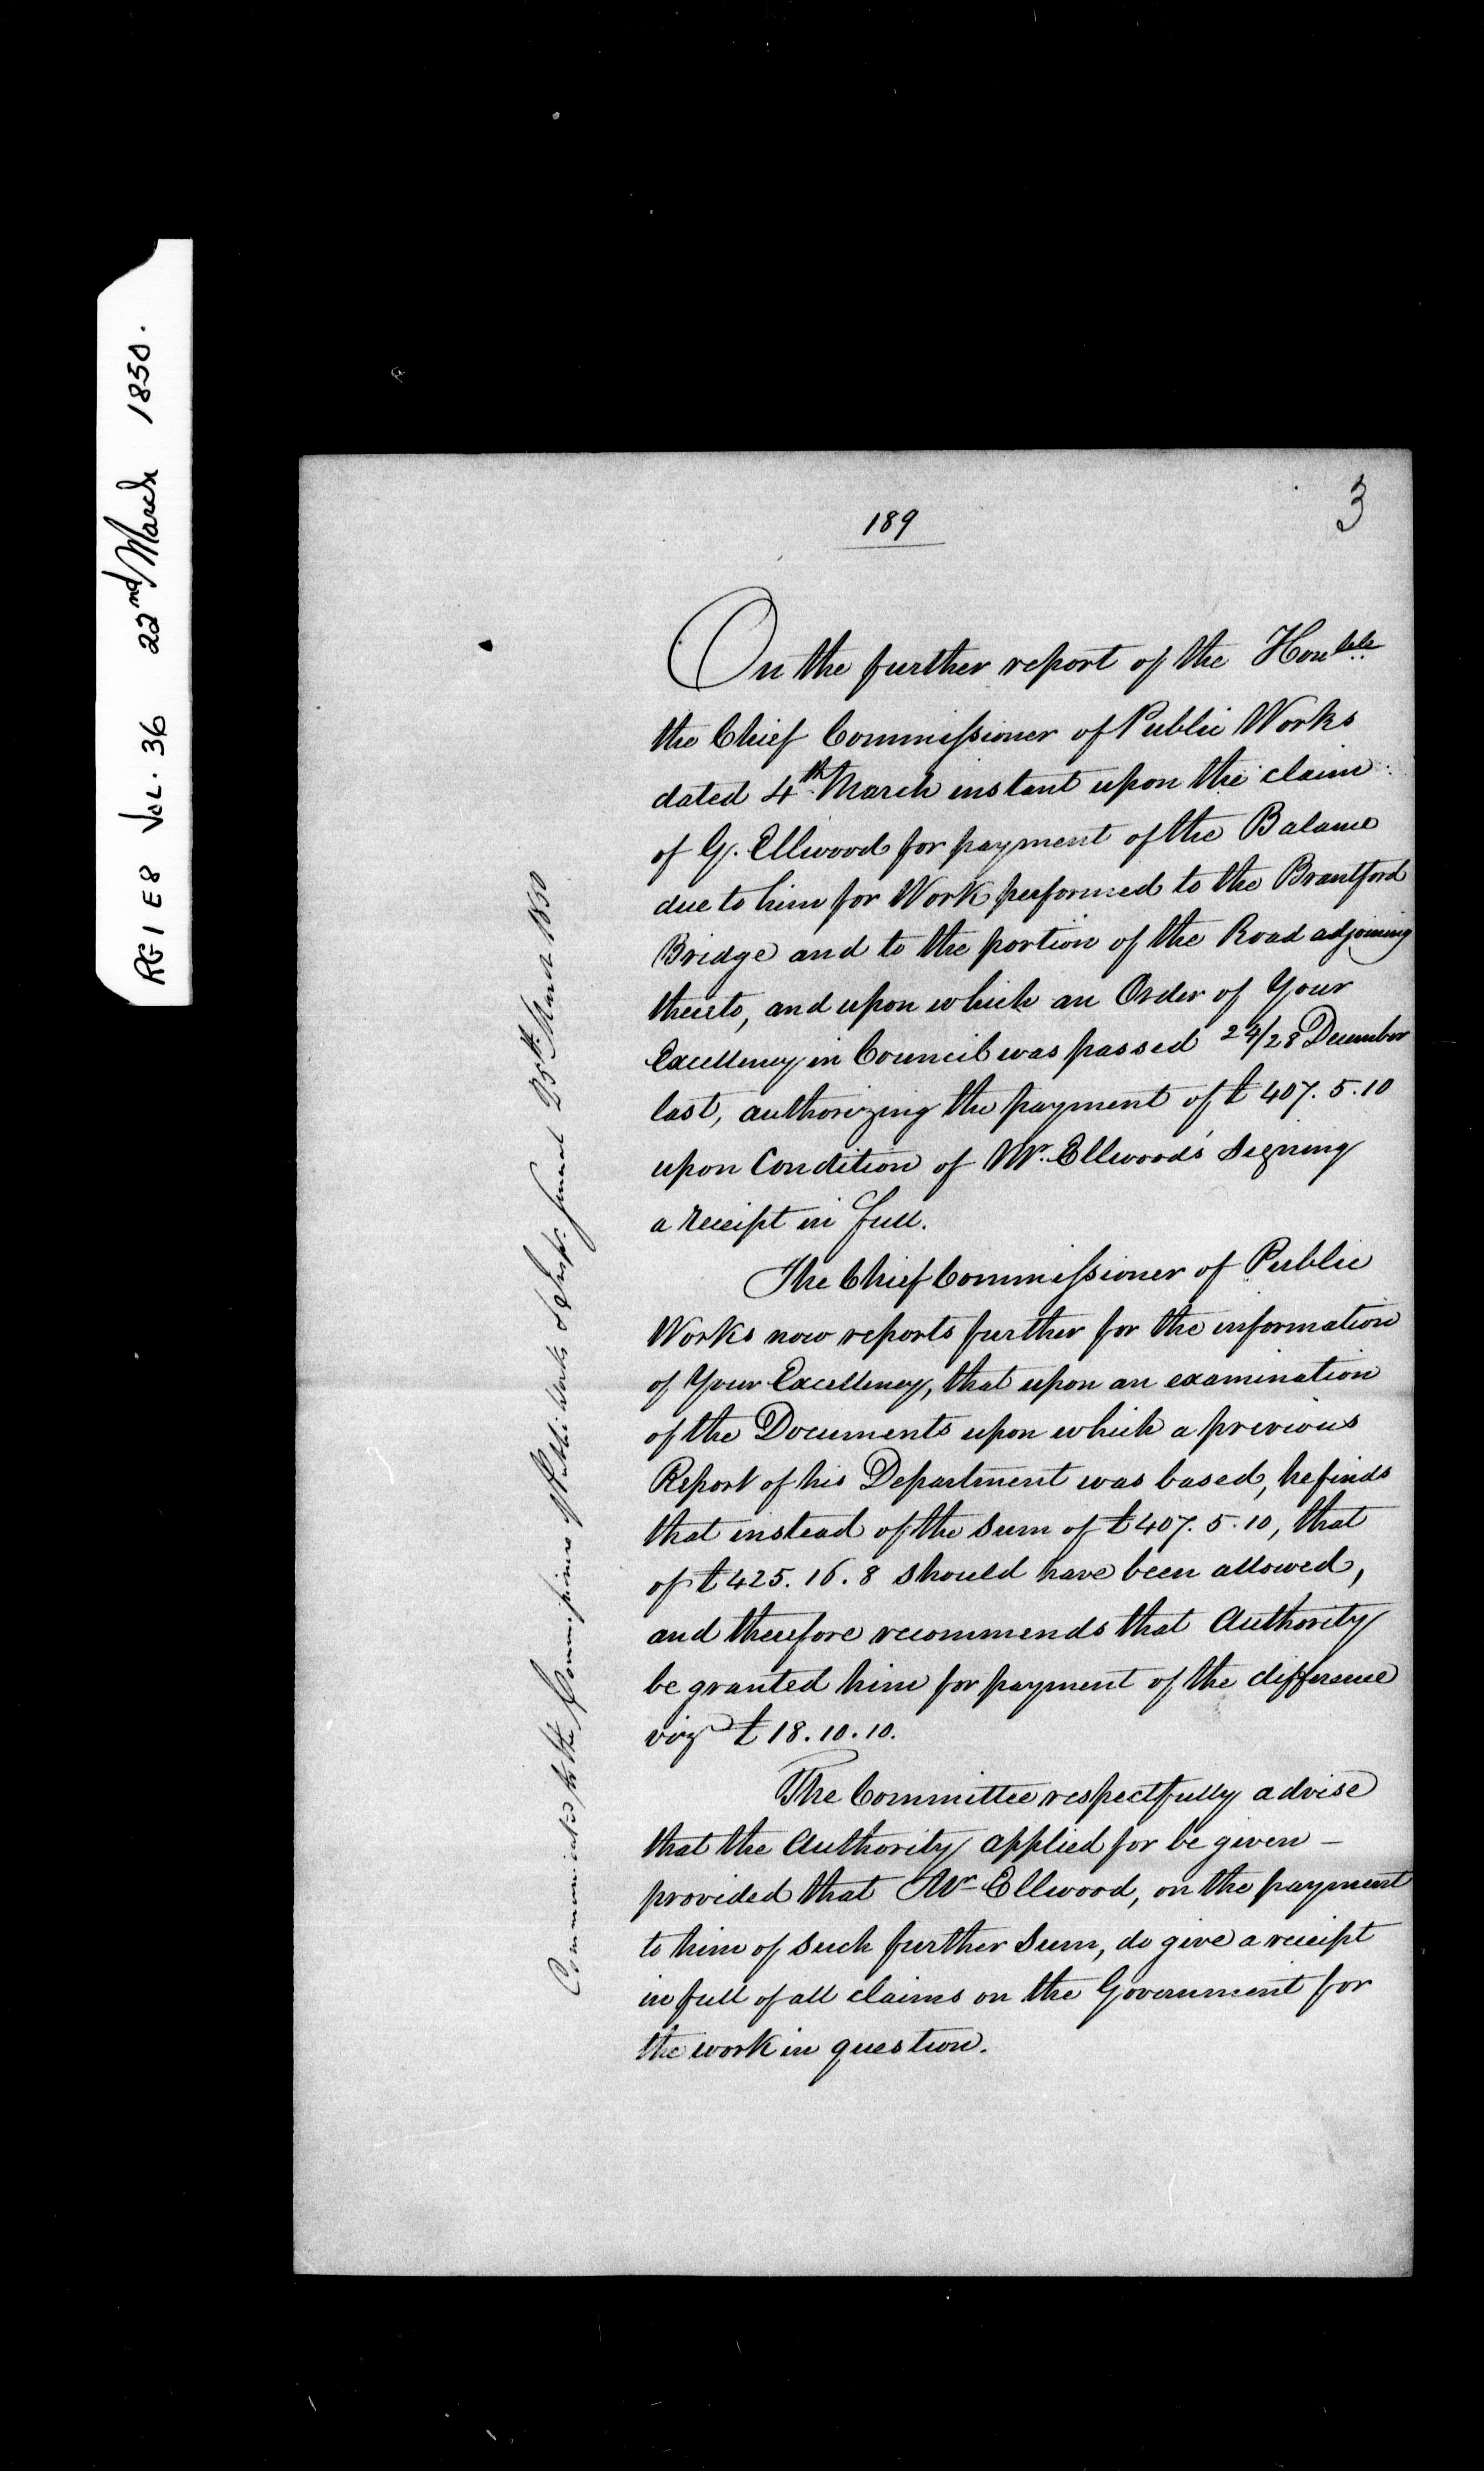 RG 1 E8 Vol. 36 22nd March 1850.
189
3
On the further report of the Honble
the Chief Commissioner of Public Works
dated 4th March instant upon the claim
of G. Ellwood for payment of the Balance
due to him for Work performed to the Brantford
Bridge and to the portion of the Road adjoining
thereto, and upon which an Order of Your
Excellency in Council was passed 24/28 December
last, authorizing the payment of £407.5.10
upon Condition of Mr. Ellwood's Signing
a receipt in full.
The Chief Commissioner of Public
Works now reports further for the information
of Your Excellency, that upon an examination
of the Documents upon which a previous
Report of his Department was based, he finds
that instead of the Sum of £407.5.10, that
of £425.16.8 should have been allowed,
and therefore recommends that Authority
be granted him for payment of the difference
viz £18.10.10.
The Committee respectfully advise
that the Authority applied for be given –
provided that Mr Ellwood, on the payment
to him of such further Sum, do give a receipt
in full of all claims on the Government for
the work in question.
Communicated to the Commissioners of Public Works & Insp. General 25th March 1850